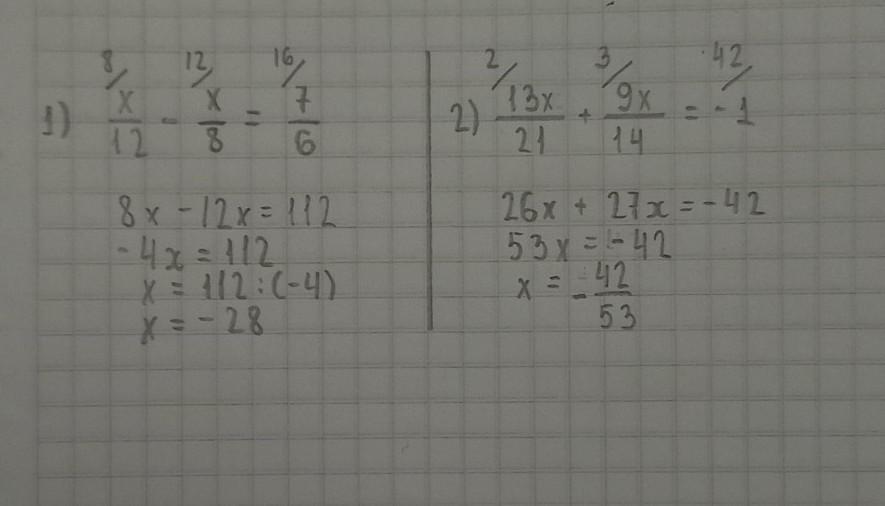 8/ 12/ 16/
1) x/12 - x/8 = 7/6
8x - 12x = 112
-4x = 112
x = 112 : (-4)
x = -28
2/ 3/ 42/
2) 13x/21 + 9x/14 = -1
26x + 27x = -42
53x = -42
x = -42/53